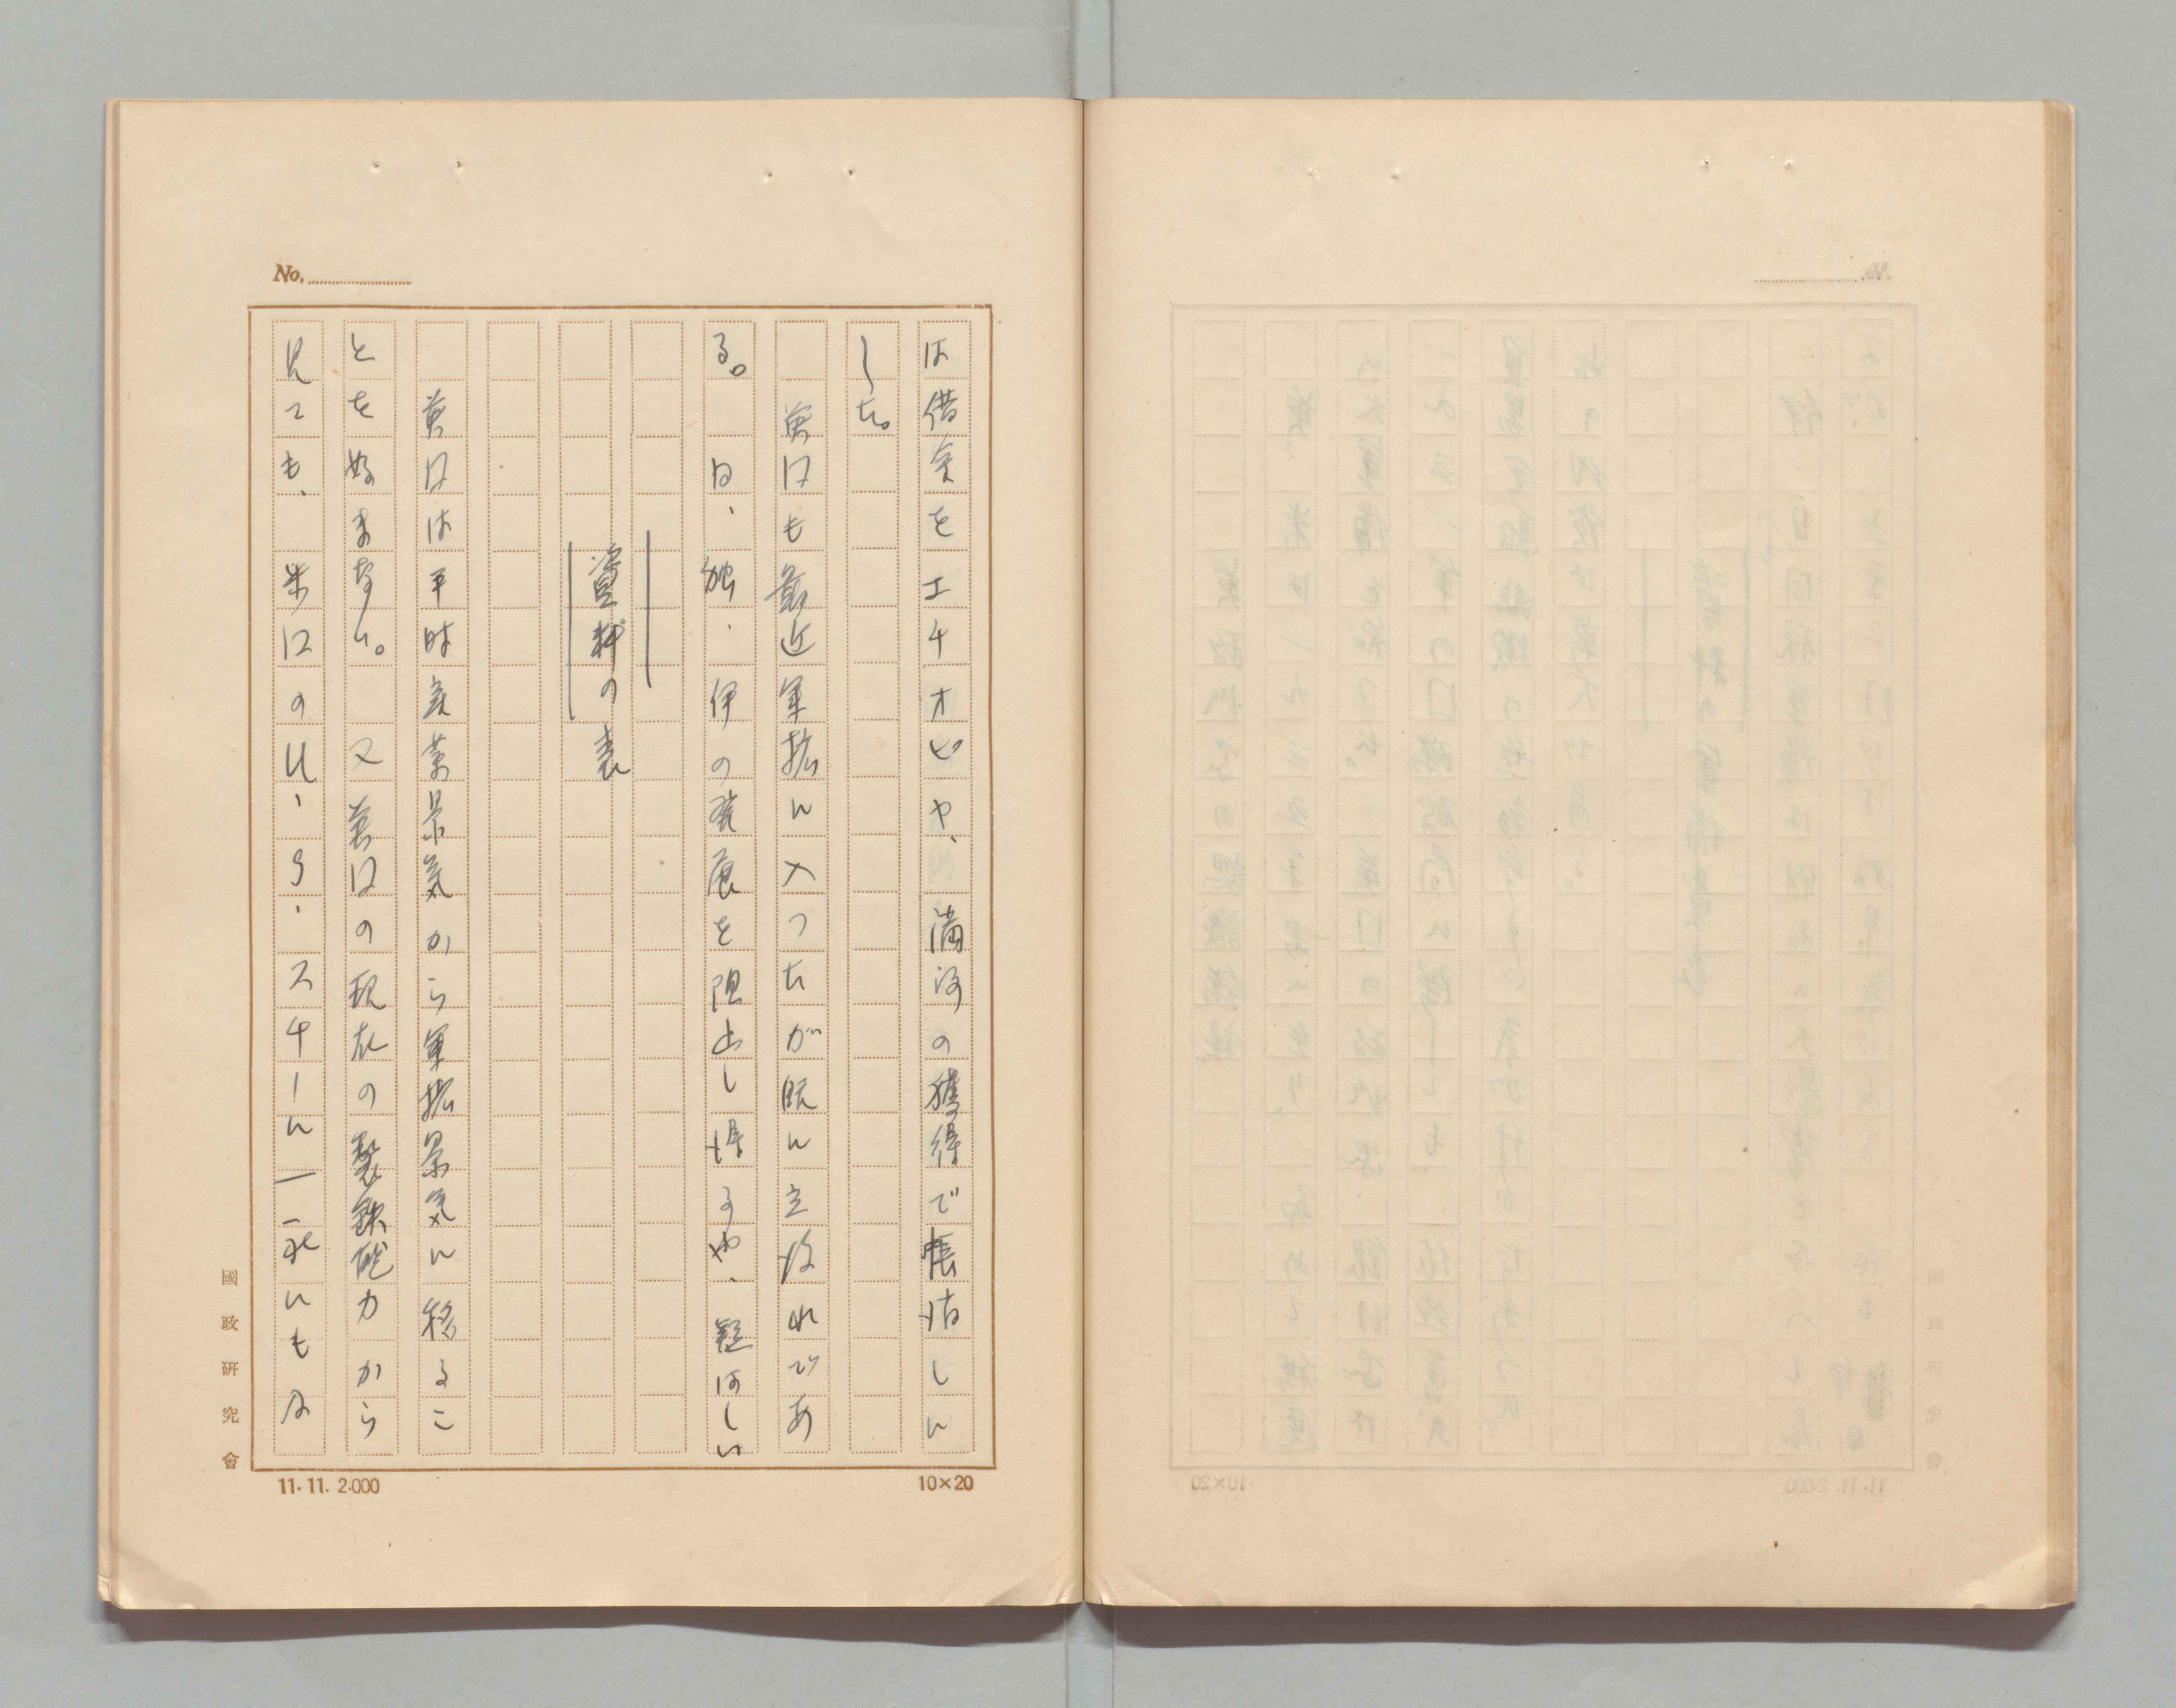 No.
は借金をエチオピヤ、満洲の獲得で帳消しに
した。
英国も最近軍拡に入つたが既に立後れであ
る。 日、独、伊の発展を阻止し得るや、疑はしい
資料の表
英国は平時産業景気から軍拡景気に移るこ
とを好まない。 又英国の現在の製鉄能力から
見ても、 米国のU、S、スチール一社にも及
國政研究會
11.11. 2.000
10×20